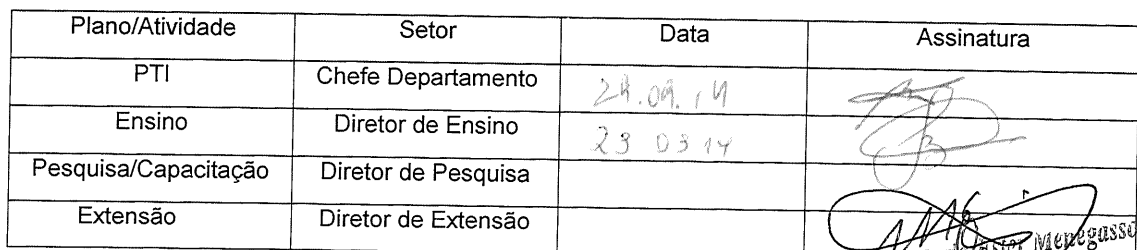 Plano/Atividade Setor Data Assinatura
PTI Chefe Departamento 24.09.14
Ensino Diretor de Ensino 23 03 14
Pesquisa/Capacitação Diretor de Pesquisa
Extensão Diretor de Extensão
Menegasso